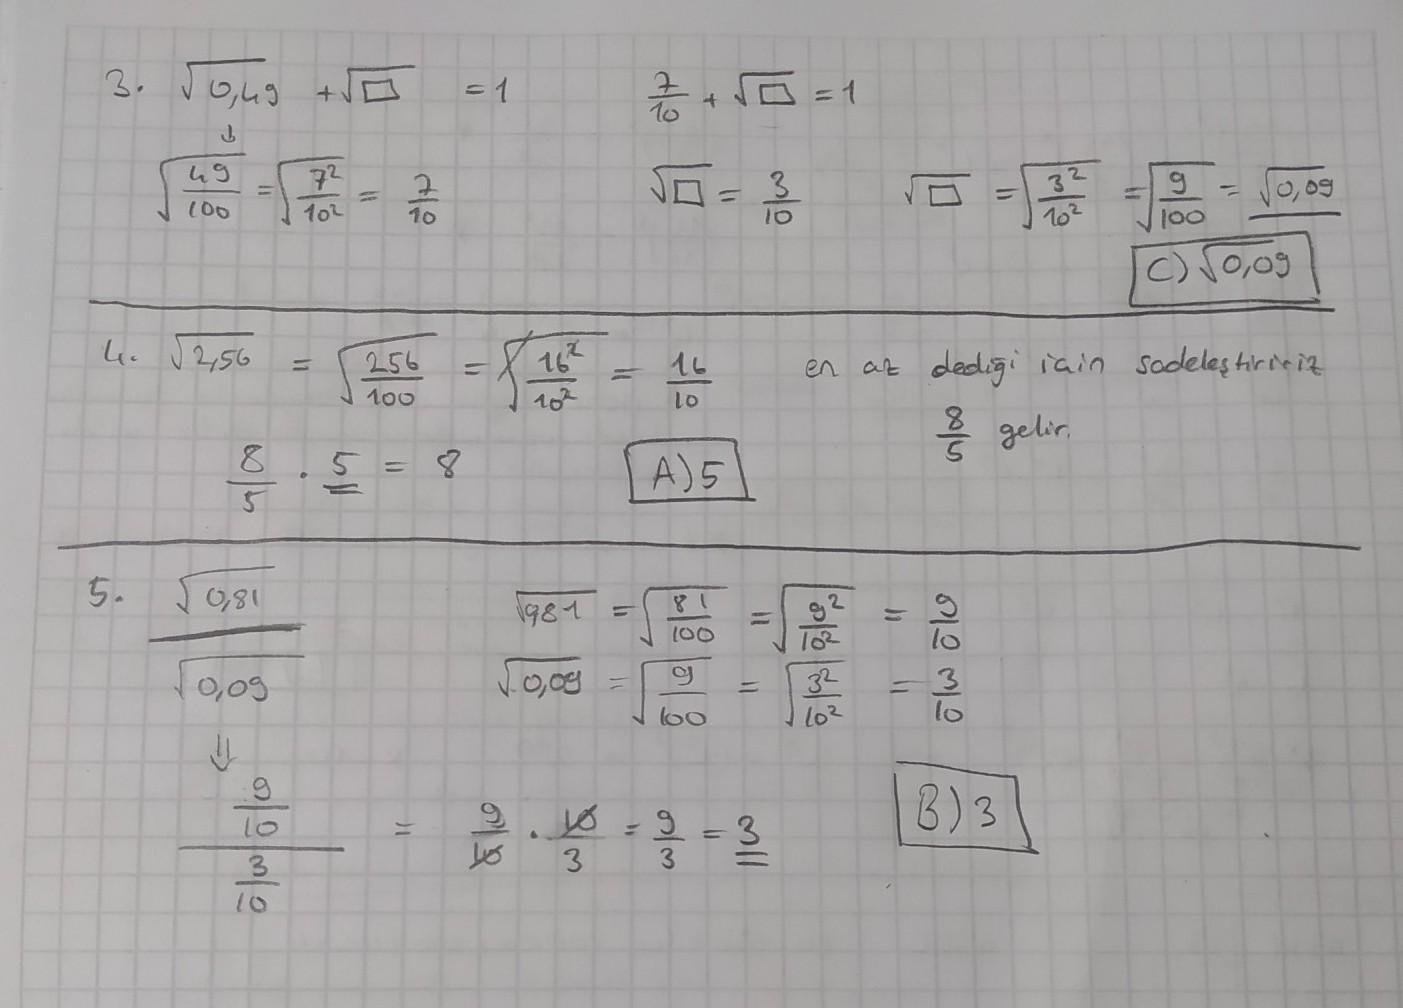 3. √0,49 + √□ = 1 7/10 + √□ = 1
↓
√49/100 = √7²/10² = 7/10 √□ = 3/10 √□ = √3²/10² = √9/100 = √0,09
C) √0,09
4. √2,56 = √256/100 = √16²/10² = 16/10 en az dediği için sadeleştiririz
8/5 gelir.
8/5 . 5 = 8 A) 5
5. √0,81 / √0,09
√0,81 = √81/100 = √9²/10² = 9/10
√0,09 = √9/100 = √3²/10² = 3/10
⇓
9/10 / 3/10 = 9/10 . 10/3 = 9/3 = 3 B) 3